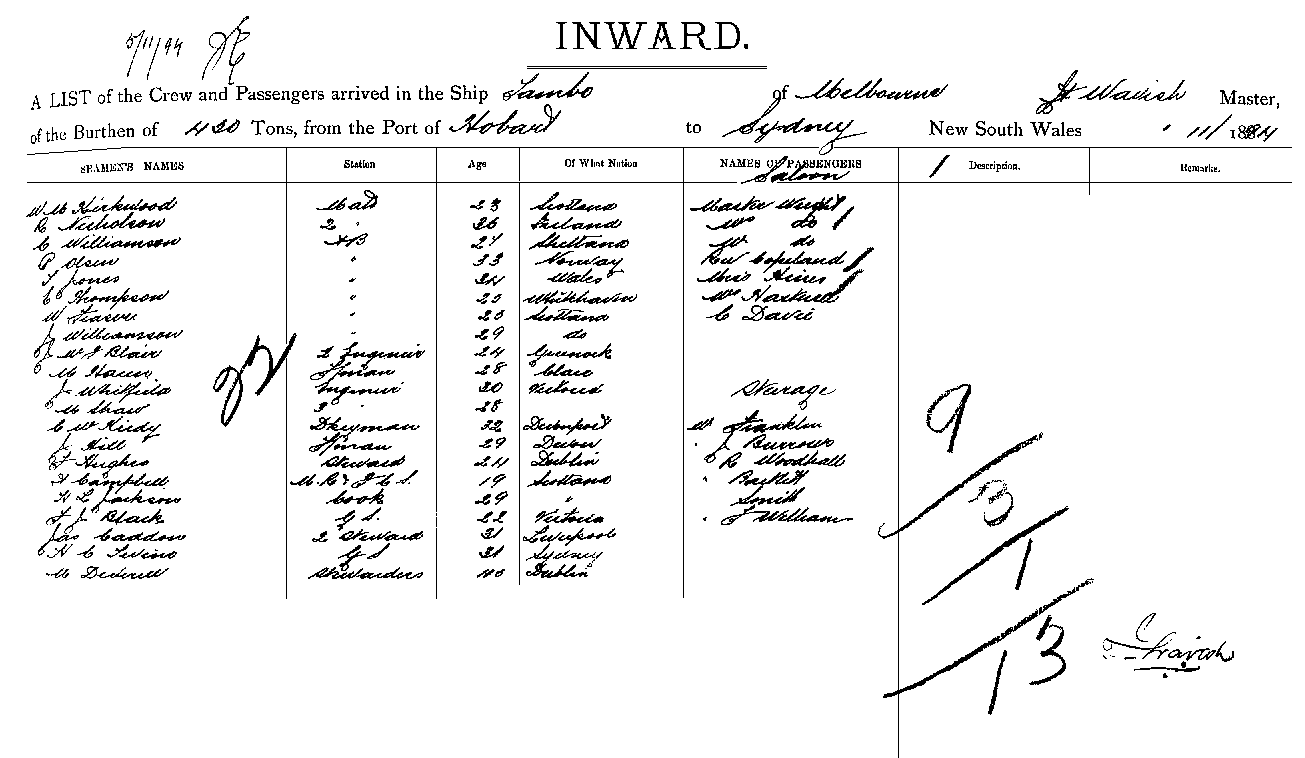 5/11/94
INWARD.
A LIST of the Crew and Passengers arrived in the Ship Tambo of Melbourne Master,
of the Burthen of Tons, from the Port of Hobart to Sydney New South Wales 11/1894
SEAMEN'S NAMES Station Age Of What Nation NAMES OF PASSENGERS Description. Remarks.
Saloon 1
W M Kirkwood Mate 23 Scotland Master Wright
R Nicholson 2 " 26 Ireland Mrs do
C Williamson AB 27 Shetland do
P Olsen " 33 Norway Rev Copeland
T Jones " 24 Wales Miss Hines
C Thompson " 25 Whitehaven
W Fraser " 25 Scotland C Davie
J Williamson " 29 do
W J Blair 2 Engineer 24 Greenock
32
M Fireman 28 Clare
J Whitfield Engineer 30 Victoria Steerage
M Shaw 3 " 28
9
C W Dkeyman 32 Devonport W Franklin
J Hill Fireman 29 Devon J Burrows
T Hughes Steward 24 Dublin R Woodhall
Campbell 19 Scotland Bartlett
3
H L Jackson Cook 29 " Smith
T J Black G S. 22 Victoria " J William
Jas Caddon 2 Steward 31 Liverpool
H C G S 31 Sydney
1
M Stewardess 40 Dublin
13